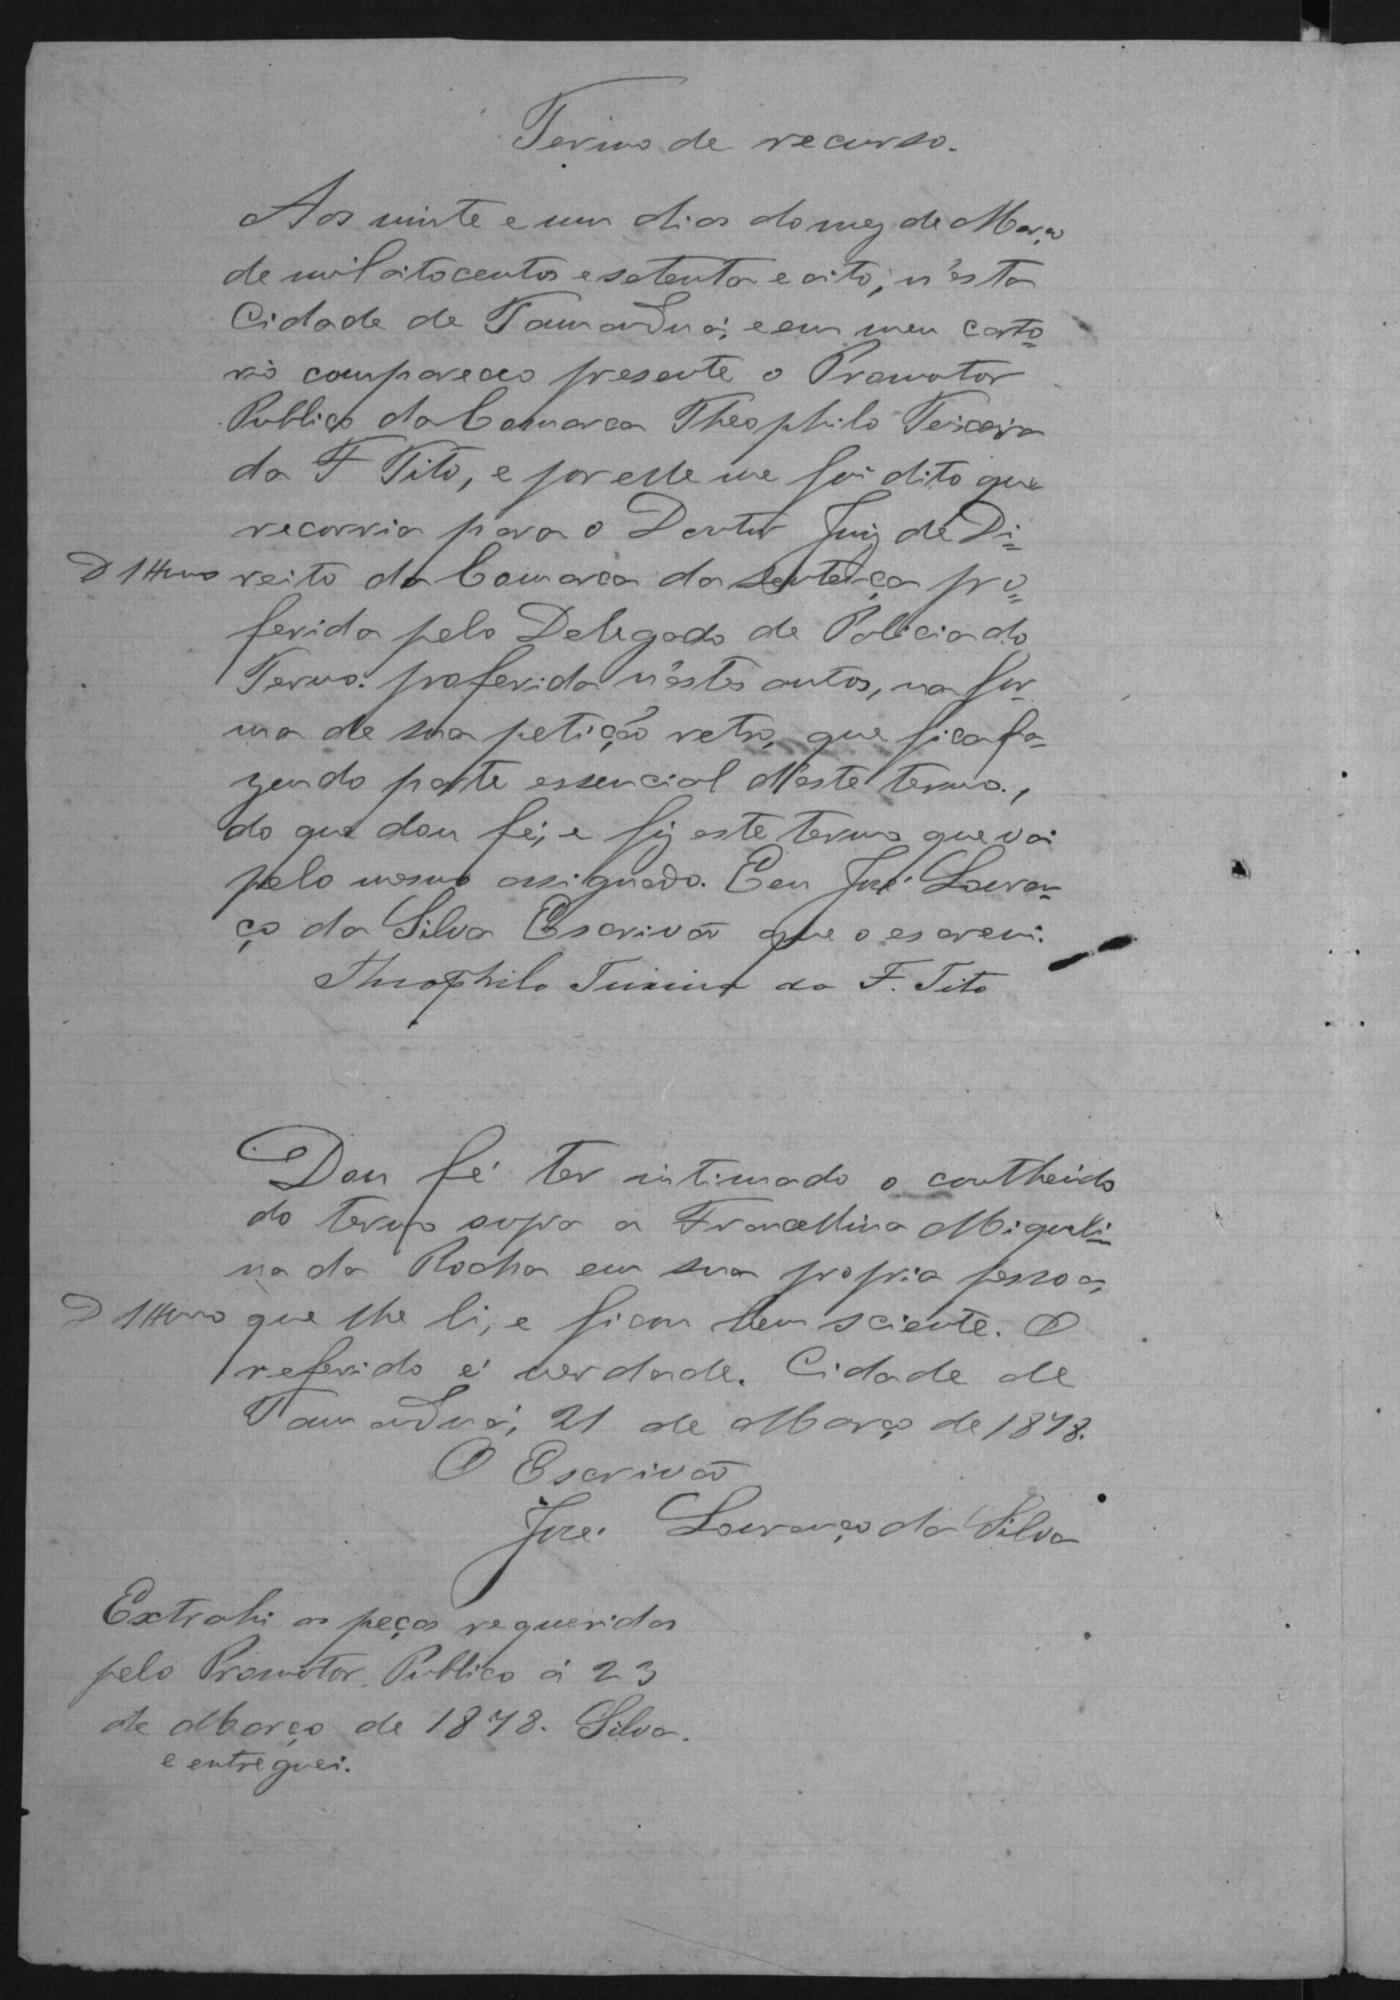 Termo de recurso.
Aos vinte e um dias do mez de Março
de mil oitocentos e setenta e oito, n'esta
Cidade de Tamanduá, e em meu carto=
rio compareceo presente o Promotor
Publico da Comarca Theophilo Teixeira
da F Tito, e por elle me foi dito que
recorria para o Doutor Juiz de Di=
reito da Comarca da sentença pro=
ferida pelo Delegado de Policia do
Termo. proferida n'estes autos, na for-
ma de sua petição retro, que fica fa-
zendo parte essencial d'este termo.,
do que dou fé, e fiz este termo que vai
pelo mesmo assignado. E eu José Louren-
ço da Silva Escrivão que o escrevi.
Theophilo Teixeira da F. Tito
Dou fé ter intimado o contheúdo
do termo supra a Francellina Migueli=
na da Rocha em sua propria pessoa,
que lhe li, e ficou bem sciente. O
referido é verdade. Cidade de
Tamanduá, 21 de Março de 1878.
O Escrivão
José Lourenço da Silva
Extrahi as peças requeridas
pelo Promotor Publico á 23
de Março de 1878. Silva.
e entreguei.